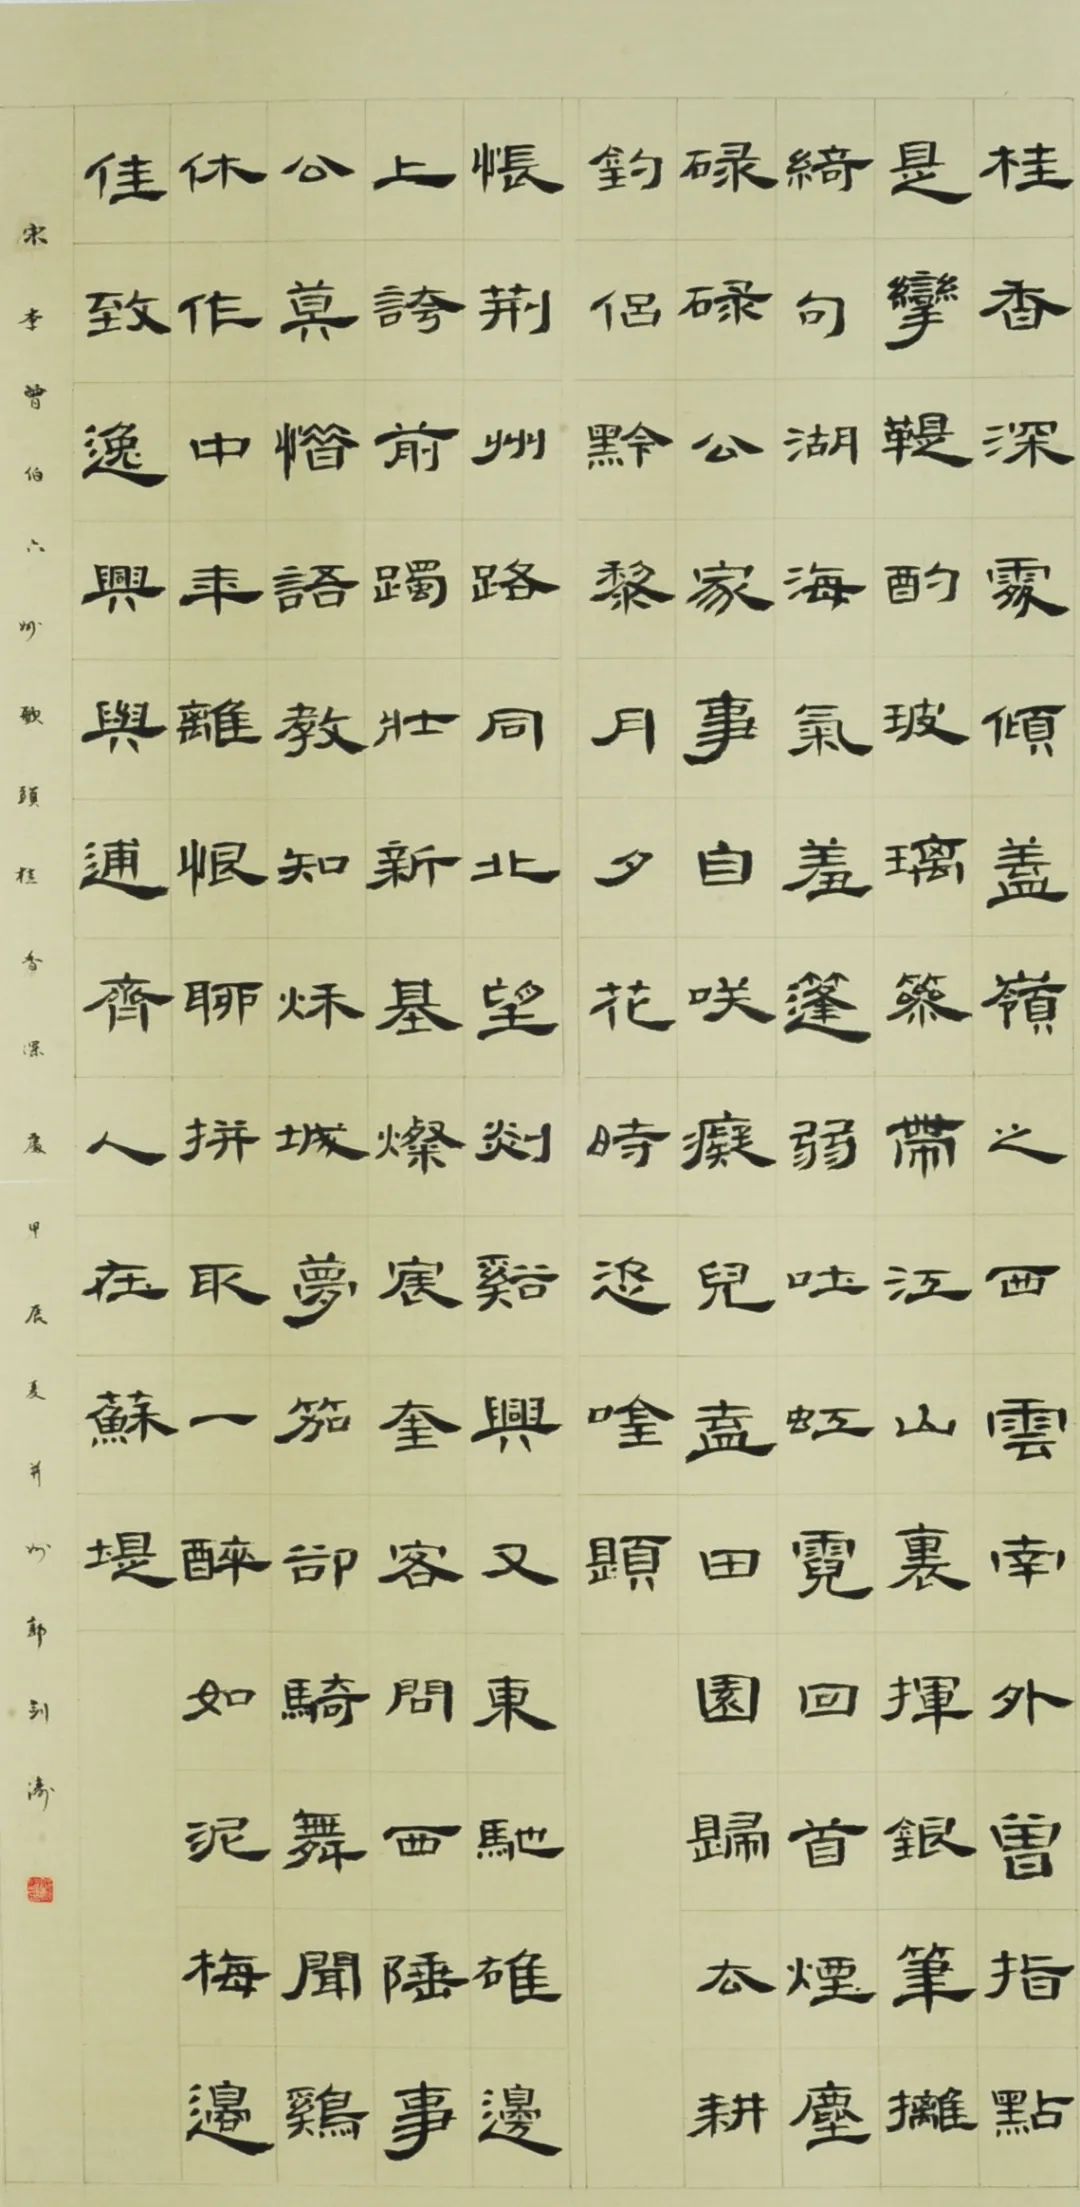 桂香深處傾蓋嶺之西雲南外曾指點
是攣鞮酌玻璃築帶江山裏揮銀筆摛
綺句湖海氣羞篷弱吐虹霓回首煙塵
碌碌公家事自咲癡兒盍田園歸去耕
釣侶黔黎月夕花時遊喹題
悵荆州路同北望剡谿興又東馳碓邊
上誇前躅壯新基燦宸奎客問西陲事
公莫憯語教知秌城夢笳卻騎舞聞鷄
休作中年離恨聊拼取一醉如泥梅邊
佳致逸興與逋齊人在蘇堤
宋李曾伯六州歌頭桂香深處甲辰夏並州郭到濤